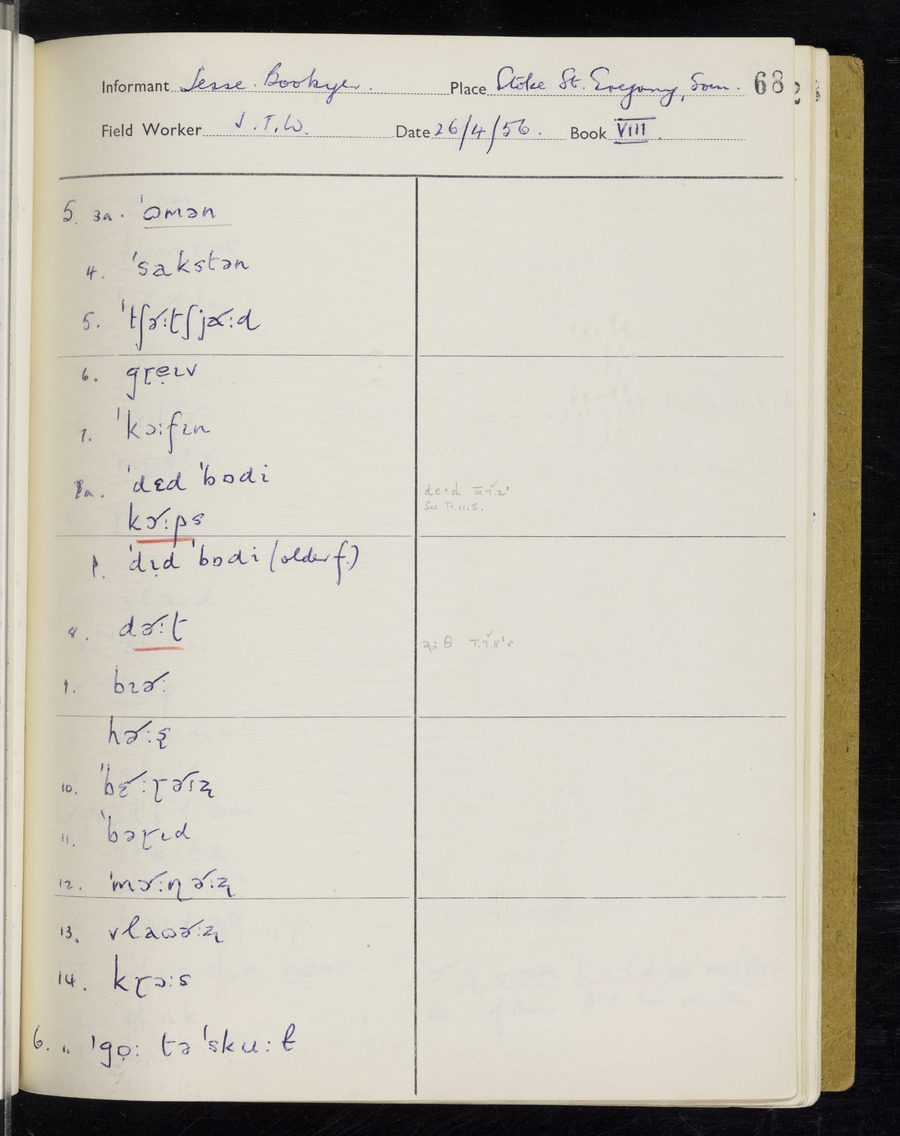 Informant Jesse. Bookyer. Place Stoke St. Gregory, Som. 68
Field Worker J.T.W. Date 26/4/56. Book VIII.
5. 3a. ˈʊmən
4. ˈsakstən
5. ˈtʃɚːtʃjɑ˞ːd
6. gɽẹɪv
7. ˈkɔːfɪn
7a. ˈdɛd ˈbɒdi
kɔ˞ːps
deːd
See IV.11.5.
b. ˈdɪd ˈbɒdi (older f.)
8. dɚːt
9. bɪɚː
hɚːʂ
10. ˈbɛ˞ːɽɚɪʐ
11. ˈbəɽɪd
12. ˈmɔ˞ːɳɚːʐ
13. vlaʊɚːʐ
14. kɽɔːs
6. ˈgọː tə ˈskuːɫ